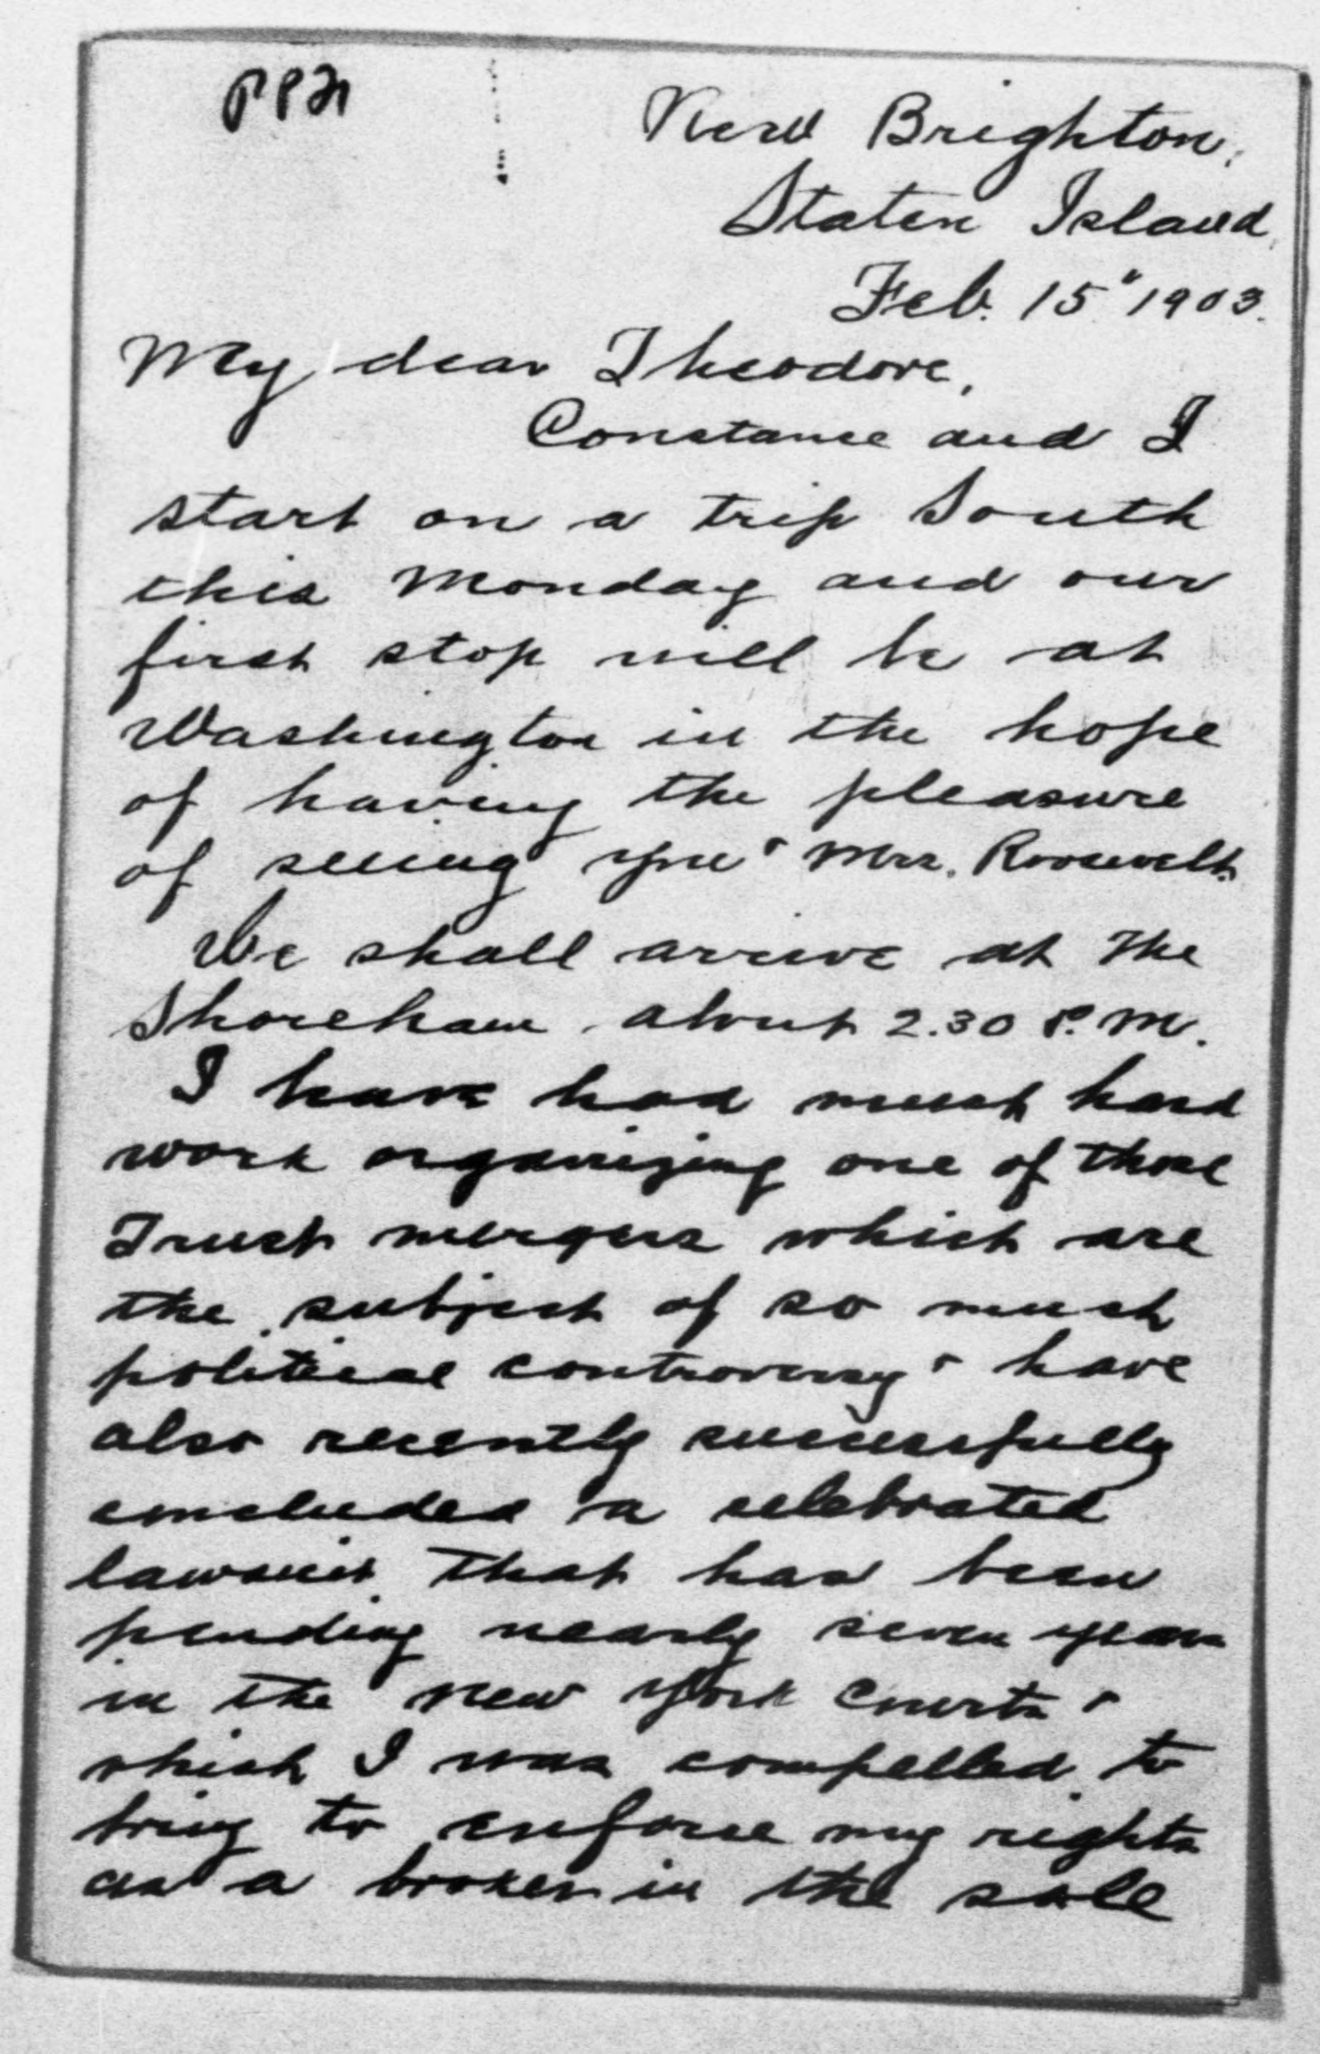 PPF
New Brighton,
Staten Island,
Feb. 15" 1903.
My dear Theodore,
Constance and I
start on a trip South
this Monday and our
first stop will be at
Washington in the hope
of having the pleasure
of seeing you & Mrs. Roosevelt.
We shall arrive at the
Shoreham about 2.30 P.M.
I have had much hard
work organizing one of those
Trust mergers which are
the subject of so much
political controversy & have
also recently successfully
concluded a celebrated
lawsuit that has been
pending nearly seven years
in the New York Courts &
which I was compelled to
bring to enforce my rights
as a broker in the sale